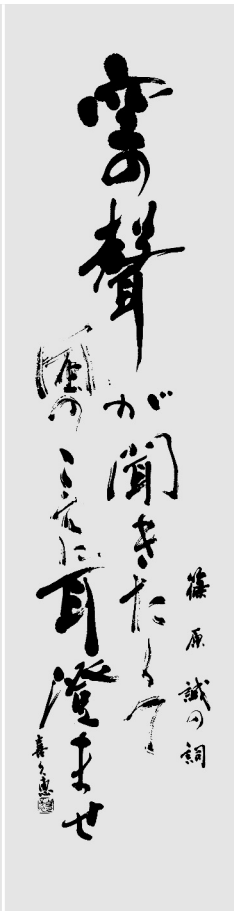 空の聲
が聞きたくて
風のこえに耳澄ませ
篠原誠の詞
喜久惠